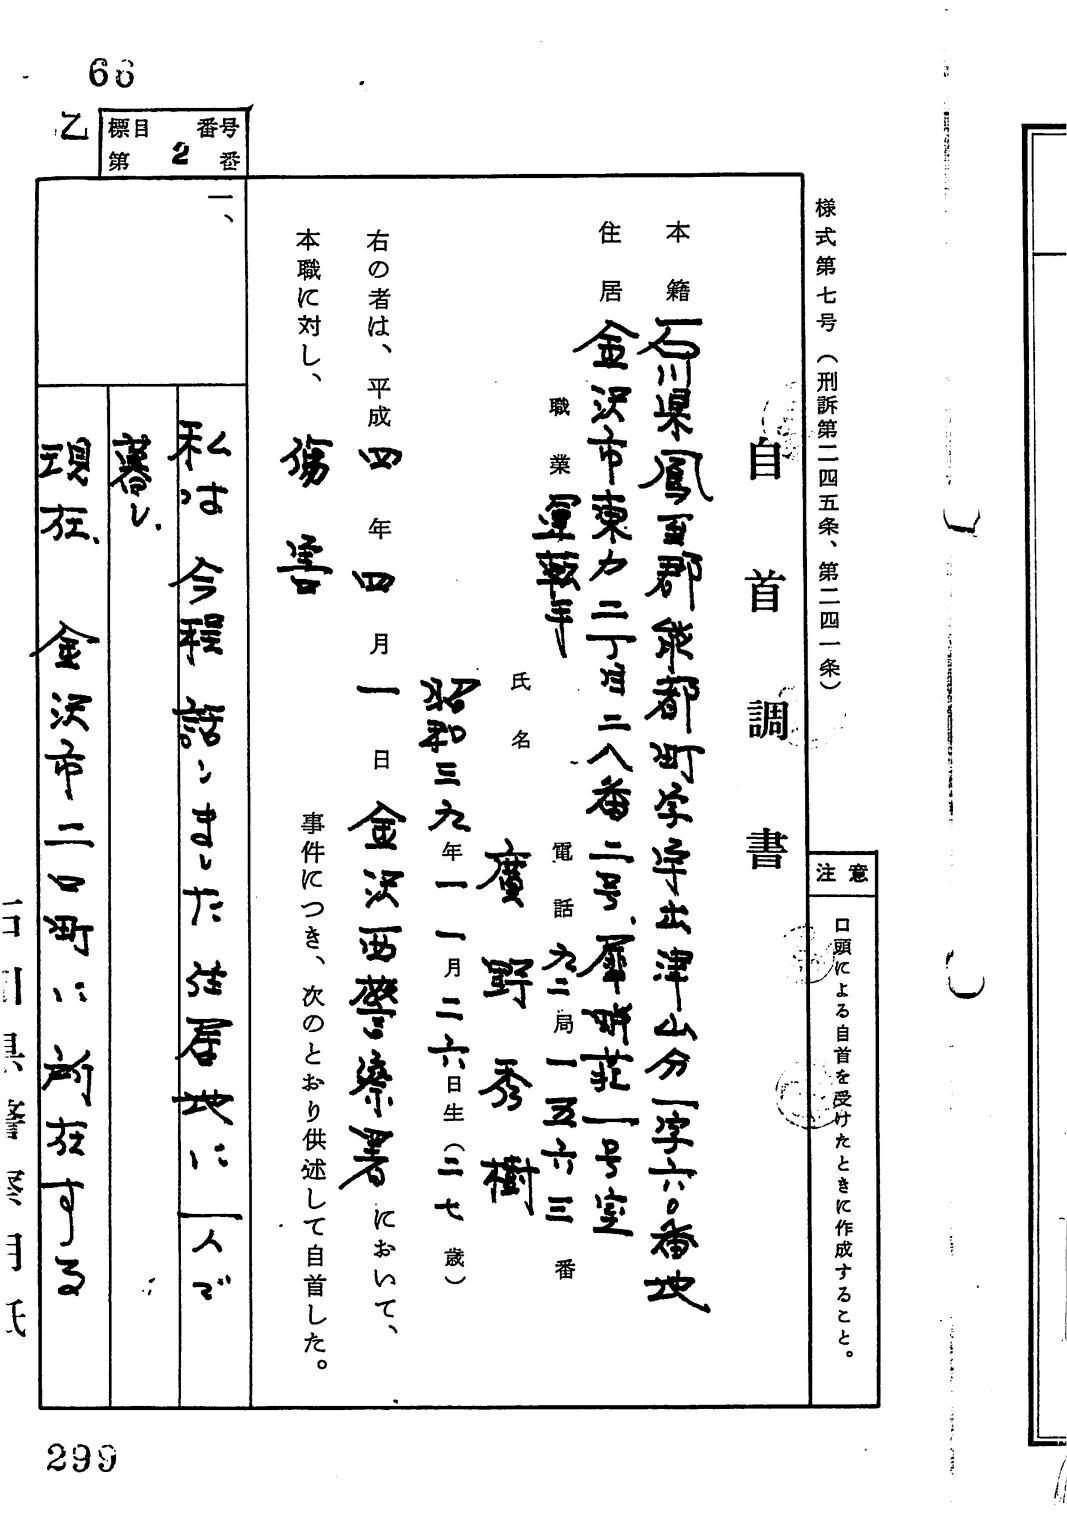 66
乙
標目 番号
第 2 番
様式第七号(刑訴第二四五条、第二四一条)
注意
口頭による自首を受けたときに作成すること。
自首調書
本籍 石川県鳳至郡能都町字宇出津山分一字六〇番地
住居 金沢市東力二丁目二八番二号 犀明荘一号室
職業 運転手 電話 九二局一五六三番
氏名 廣野秀樹
昭和三九年一一月二六日生(二七歳)
右の者は、平成四年四月一日 金沢西警察署 において、
本職に対し、 傷害 事件につき、次のとおり供述して自首した。
一、
私は 今程 話しました 住居地に一人で
暮し、
現在、 金沢市二口町に所在する
石川県警察用紙
299